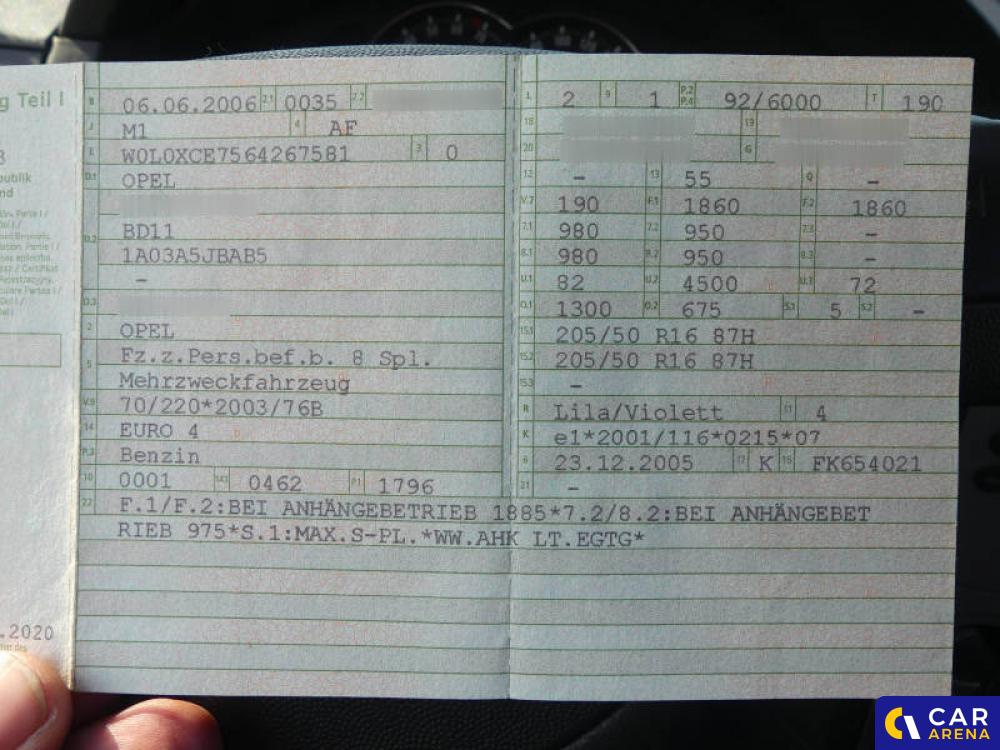 g Teil I
B 06.06.2006 2.1 0035 2.2
J M1 4 AF
E W0L0XCE7564267581 3 0
D.1 OPEL
D.2 BD11
1A03A5JBAB5
–
D.3
2 OPEL
5 Fz.z.Pers.bef.b. 8 Spl.
Mehrzweckfahrzeug
V.9 70/220*2003/76B
14 EURO 4
P.3 Benzin
10 0001 14.1 0462 P.1 1796
22 F.1/F.2:BEI ANHÄNGEBETRIEB 1885*7.2/8.2:BEI ANHÄNGEBET
RIEB 975*S.1:MAX.S-PL.*WW.AHK LT.EGTG*
L 2 9 1 P.2 P.4 92/6000 T 190
18 19
20 G
12 – 13 55 Q –
V.7 190 F.1 1860 F.2 1860
7.1 980 7.2 950 7.3 –
8.1 980 8.2 950 8.3 –
U.1 82 U.2 4500 U.3 72
O.1 1300 O.2 675 S.1 5 S.2 –
15.1 205/50 R16 87H
15.2 205/50 R16 87H
15.3 –
R Lila/Violett 11 4
K e1*2001/116*0215*07
6 23.12.2005 17 K 16 FK654021
21 –
.2020
CAR
ARENA